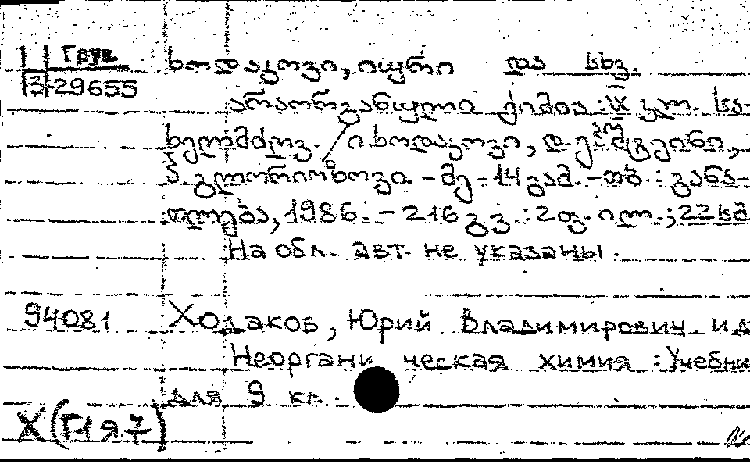 Груз
3-29655
ხოდაკოვი, იური და სხვ.
არაორგანული ქიმია : IX კლ. სა-
ხელმძღვ. ი. ხოდაკოვი, დ. ეპშტეინი,
პ. გლორიოზოვი. - მე-14 გამ. - თბ. : განა-
თლება, 1986. - 216 გვ. : 2 ფ. ილ. ; 22 სმ
На обл. авт. не указаны.
94081 Ходаков, Юрий Владимирович и д
Неоргани ческая химия : Учебни
для 9 кл.